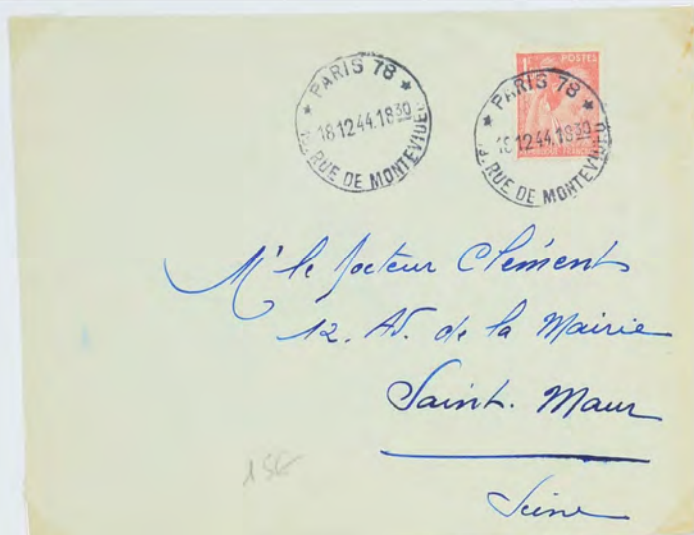 PARIS 78
18.12.44.18 30
RUE DE MONTEVIDEO
POSTES
PARIS 78
18.12.44.18 30
RUE DE MONTEVIDEO
Mr le Docteur Clément
12. Av. de la Mairie
Saint. Maur
Seine
15€